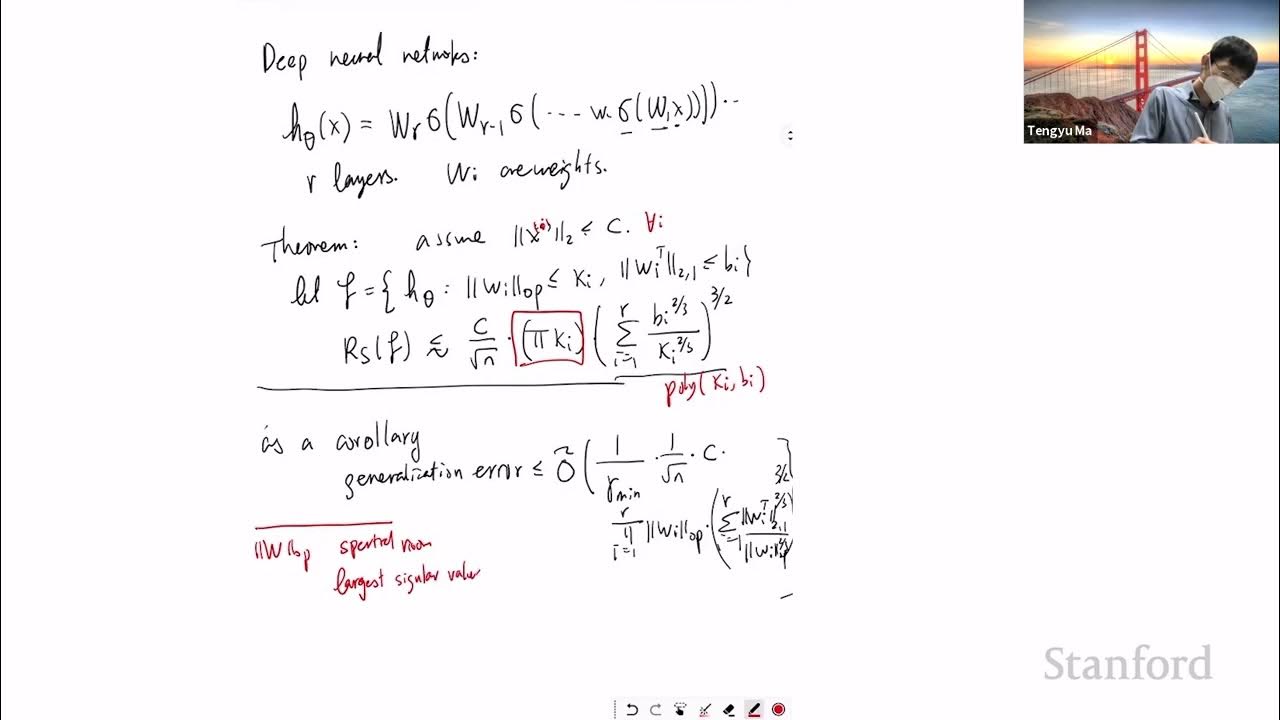 Deep neural networks:
h_θ(x) = W_r σ(W_{r-1} σ(⋯ w. σ(W_1 x))))⋯
r layers. Wi are weights.
Theorem: assume ||x^{(i)}||_2 ≤ C. ∀i
let F = { h_θ : ||Wi||_op ≤ Ki, ||Wi^T||_{2,1} ≤ bi}
R_S(F) ≲ C/√n · (Π Ki) (Σ_{i=1}^r bi^{2/3} / Ki^{2/3})^{3/2}
poly(Ki, bi)
as a corollary
generalization error ≤ Õ( 1/γ_min · 1/√n · C·
Π_{i=1}^r ||Wi||_op · (Σ_{i=1}^r ||Wi^T||_{2,1}^{2/3} / ||Wi||_op^{2/3})^{3/2}
||W||_op spectral norm
largest sigular value
Tengyu Ma
Stanford